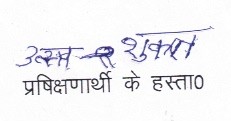 शुक्ला
प्रषिक्षणार्थी के हस्ता0